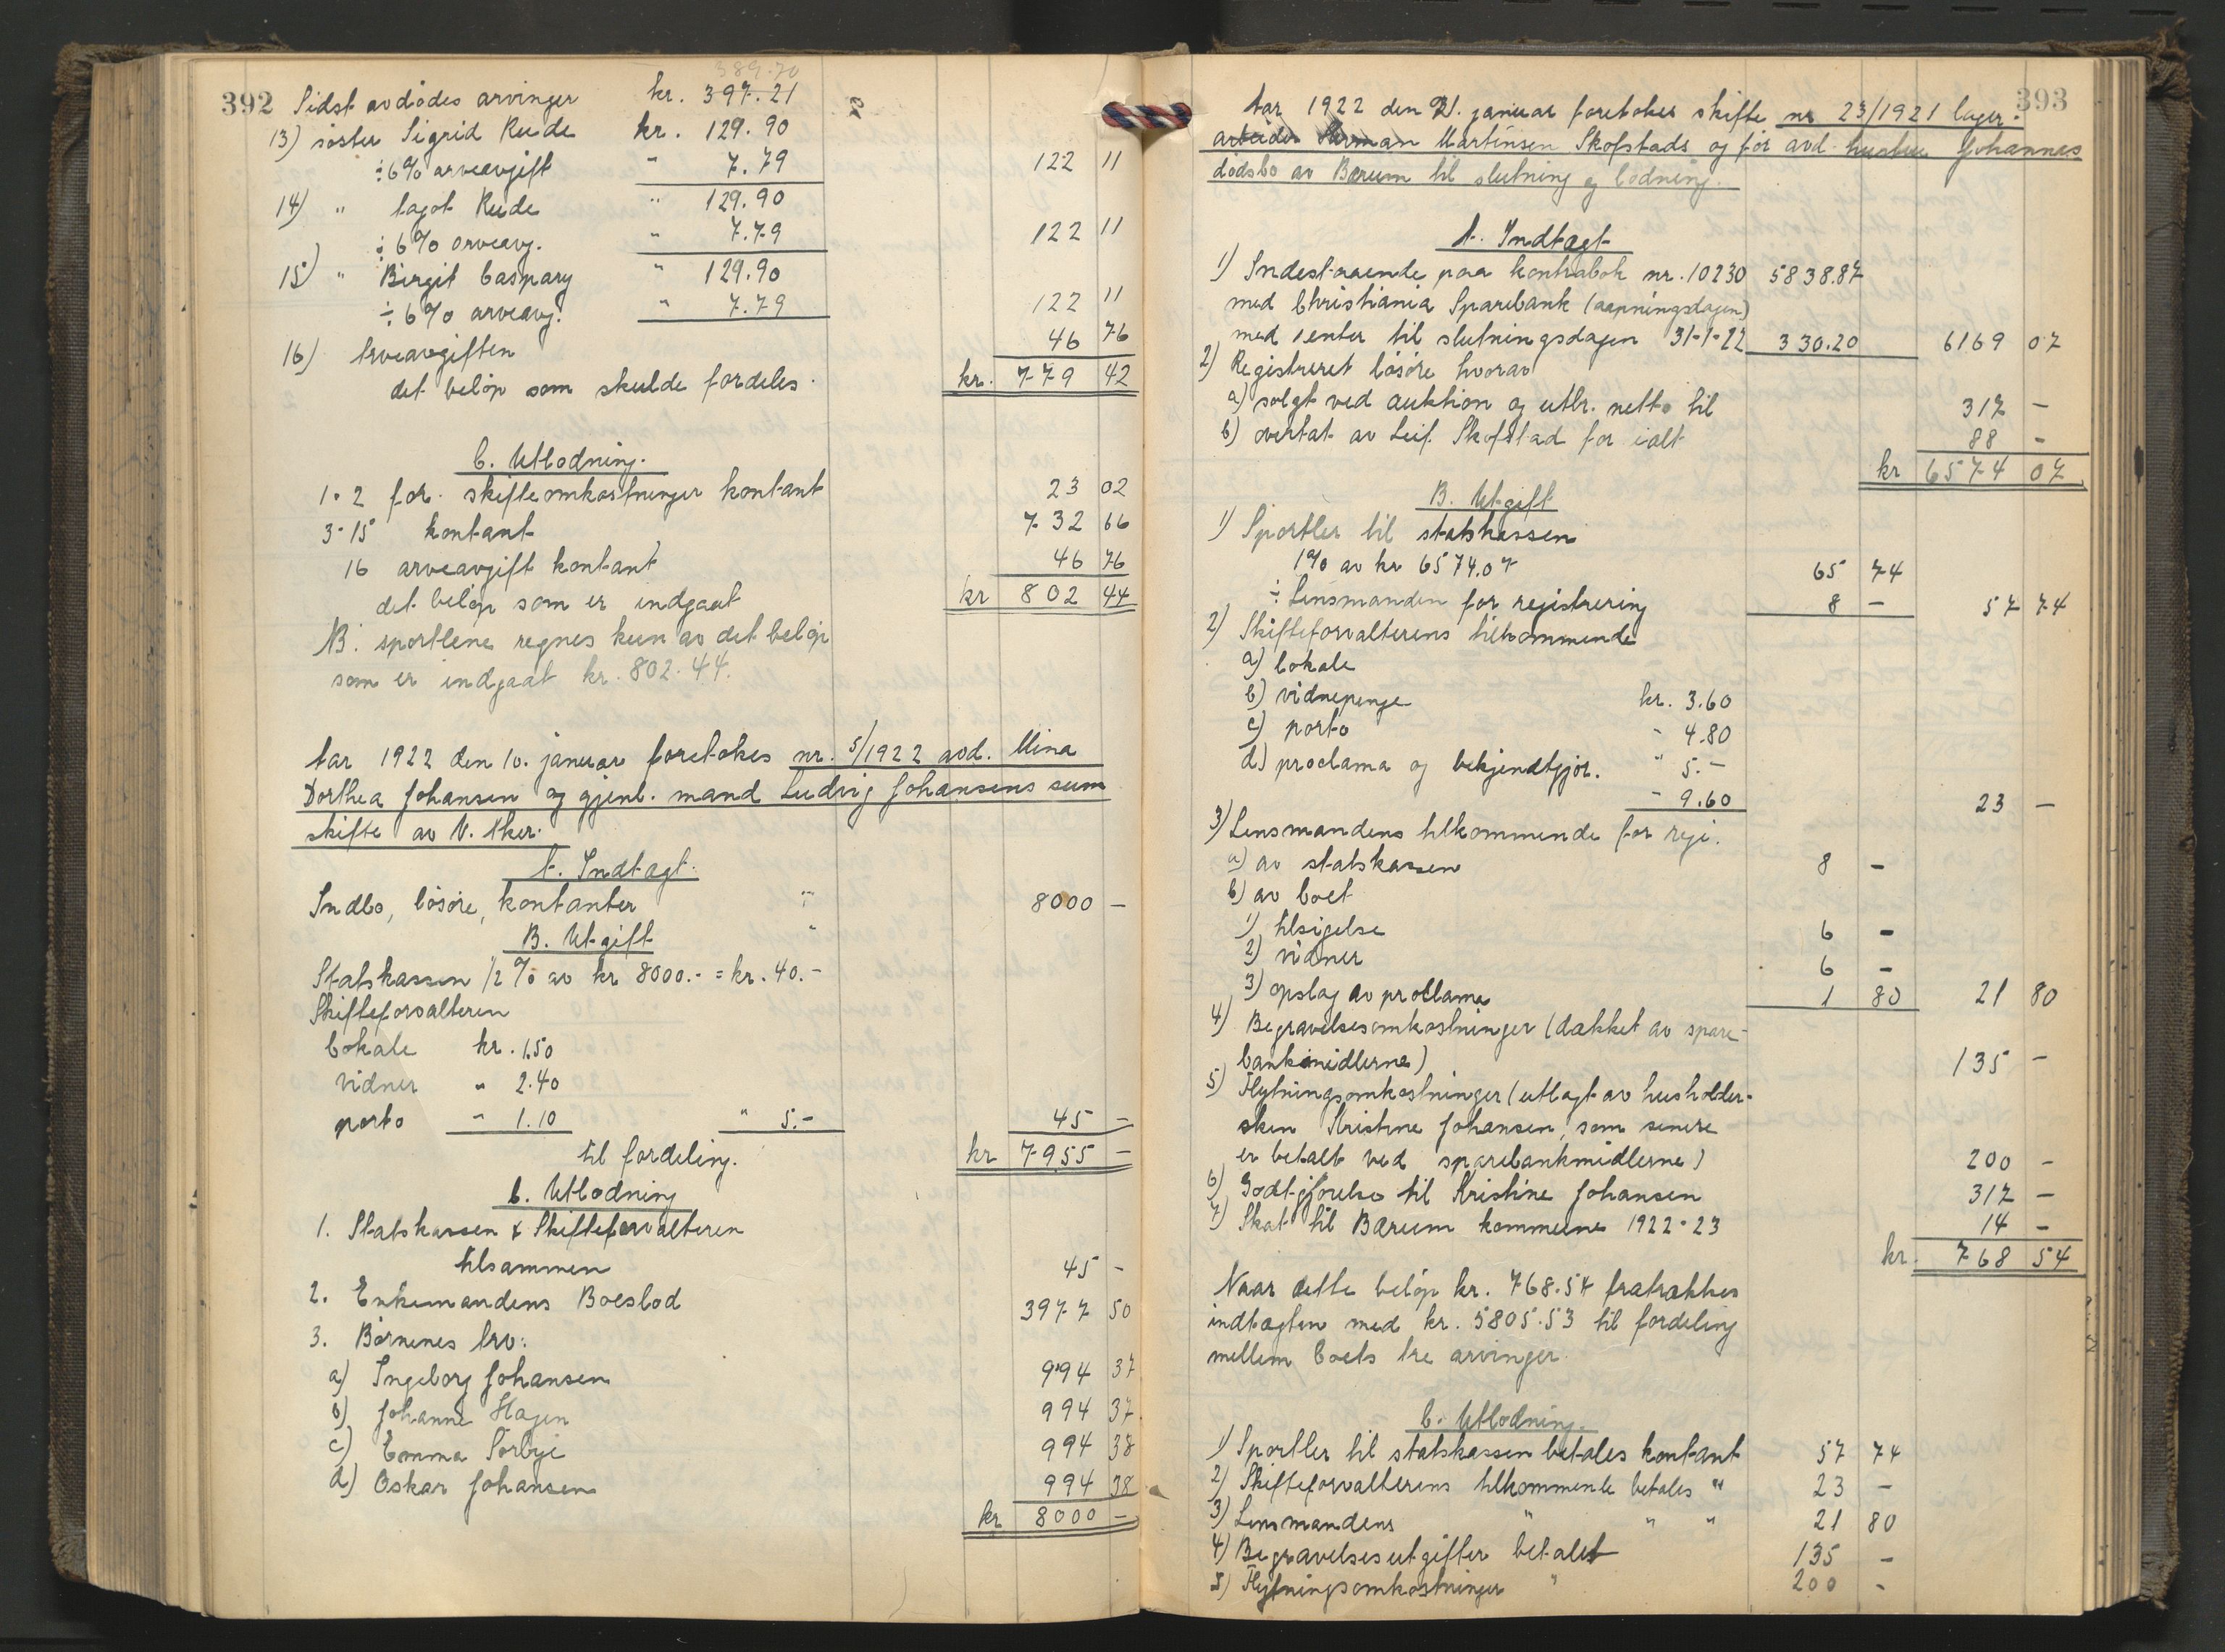 392
389.70
Sidst avdødes arvinger kr. 397.21
13) søster Sigrid Rude kr. 129.90
÷ 6% arveavgift " 7.79 122 11
14) " Ragot Rude " 129.90
÷ 6% arveavg. " 7.79 122 11
15) " Birgit Caspary " 129.90
÷ 6% arveavg. " 7.79 122 11
16) Arveavgiften 46 76
det beløp som skulde fordeles. kr. 779 42
C. Utlodning.
1-2 for. skifteomkostninger kontant 23 02
3-15 kontant 732 66
16 arveavgift kontant 46 76
det beløp som er indgaat kr 802 44
NB: sportlene regnes kun av det beløp
som er indgaat kr. 802.44.
Aar 1922 den 10. januar foretokes nr. 5/1922 avd. Mina
Dorthea Johansen og gjenl. mand Ludvig Johansens sum
skifte av V. Aker.
A. Indtægt.
Indbo, løsøre, kontanter " 8000 –
B. Utgift "
Statskassen 1/2 % av kr 8000.- = kr. 40.-
Skifteforvalteren
lokale kr. 1.50
vidner " 2.40
porto " 1.10 " 5.- 45 –
til fordeling. kr 7955 –
C. Utlodning
1. Statskassen & Skifteforvalteren
tilsammen 45 -
2. Enkemandens Boeslod 3977 50
3. Børnenes Arv:
a) Ingeborg Johansen 994 37
b) Johanne Hagen 994 37
c) Emma Sørbye 994 38
d) Oskar Johansen 994 38
kr 8000 –
393
Aar 1922 den 31. januar foretokes skifte nr 23/1921 lager-
arbeider Herman Martinsen Skofstads og før avd. hustru Johannes
dødsbo av Bærum til slutning og lodning.
A. Indtægt
1) Indestaaende paa kontrabok nr. 10230 5838.87
med Christiania Sparebank (aapningsdagen)
med renter til slutningsdagen 31-1-22 330.20 6169 07
2) Registreret løsøre hvorav
a) solgt ved auktion og utbr. netto til 317 –
b) overtat av Leif Skofstad for ialt 88 -
kr 6574 07
B. Utgift
1) Sportler til statskassen
1% av kr 6574.07 65 74
÷ Lensmanden for registrering 8 – 57 74
2) Skifteforvalterens tilkommende
a) lokale
b) vidnepenge kr. 3.60
c) porto " 4.80
d) proclama og bekjendtgjør. " 5.-
" 9.60 23 –
3) Lensmandens tilkommende for regi.
a) av statskassen 8 –
b) av boet
1) tilsigelse 6 –
2) vidner 6 –
3) opslag av proclama 1 80 21 80
4) Begravelsesomkostninger (dækket av spare-
bankmidlerne) 135 –
5) Flytningsomkostninger (utlagt av husholder-
sken Kristine Johansen, som senere
er betalt ved sparebankmidlerne) 200 –
6) Godtgjørelse til Kristine Johansen 317 –
7) Skat til Bærum kommune 1922-23 14 –
kr. 768 54
Naar dette beløp kr. 768.54 fratrækkes
indtægten med kr. 5805.53 til fordeling
mellem boets tre arvinger.
C. Utlodning.
1) Sportler til statskassen betales kontant 57 74
2) Skifteforvalterens tilkommende betales " 23 –
3) Lensmandens " " " 21 80
4) Begravelsesutgifter betalt 135 –
5) Flytningsomkostninger " 200 -